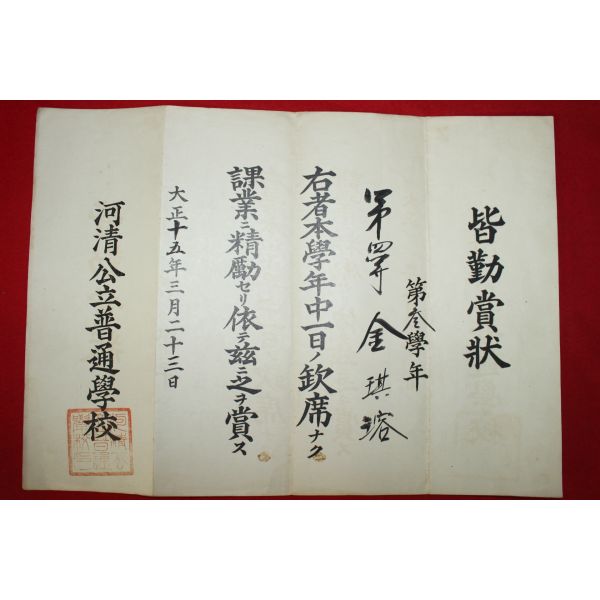 皆勤賞狀
第叁學年
第四學年 金琪溶
右者本學年中一日ノ欽席ナク
課業ニ精勵セリ依テ玆ニ之ヲ賞ス
大正十五年三月二十三日
河清公立普通學校